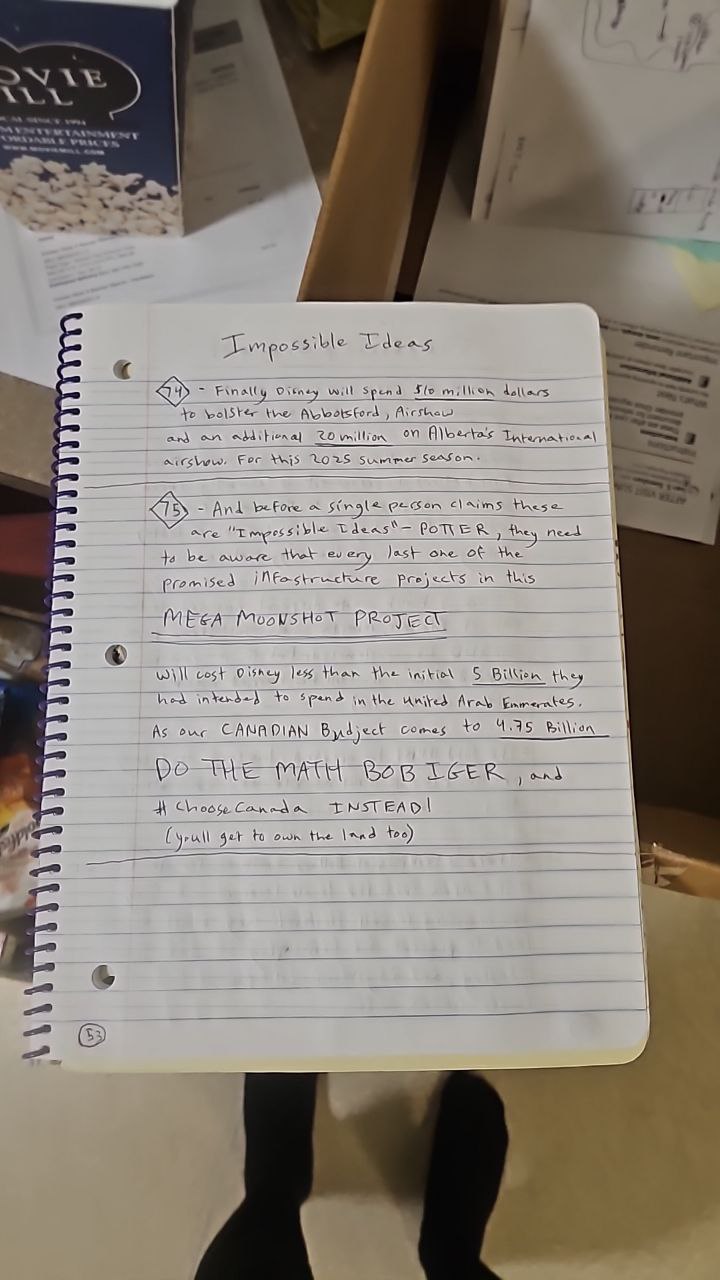 OVIE
ILL
CAL SINCE 1994
M ENTERTAINMENT
ORDABLE PRICES
WWW.MOVIEMILL.COM
Impossible Ideas
74 - Finally Disney will spend $10 million dollars
to bolster the Abbotsford, Airshow
and an additional 20 million on Alberta's International
airshow. For this 2025 summer season.
75 - And before a single person claims these
are "Impossible Ideas" - POTTER, they need
to be aware that every last one of the
promised infastructure projects in this
MEGA MOONSHOT PROJECT
will cost Disney less than the initial 5 Billion they
had intended to spend in the United Arab Emmerates.
As our CANADIAN Budject comes to 4.75 Billion
DO THE MATH BOB IGER, and
# Choose Canada INSTEAD!
(youll get to own the land too)
53
What's Next
Instructions
AFTER VISIT SUM